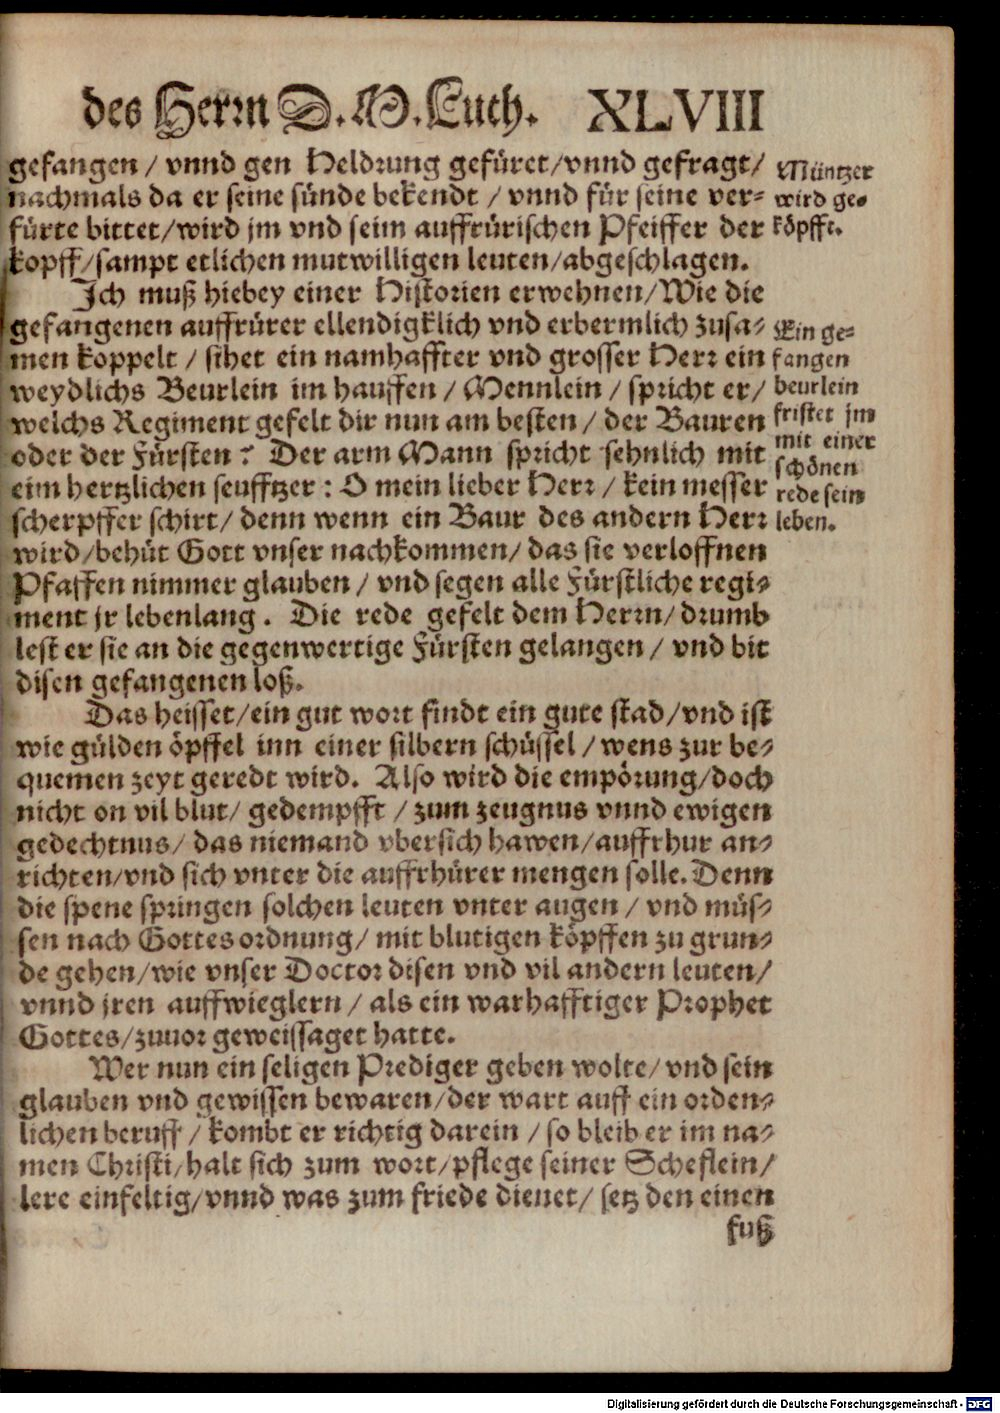 des Herrn D. M. Luth. XLVIII
gefangen / vnnd gen Heldrung gefüret/vnnd gefragt/
nachmals da er seine sünde bekendt / vnnd für seine ver-
fürte bittet/wird jm vnd seim auffrürischen Pfeiffer der
kopff/sampt etlichen mutwilligen leuten/abgeschlagen.
Müntzer
wird ge-
köpfft.
Ich muß hiebey einer Historien erwehnen/Wie die
gefangenen auffrürer ellendigklich vnd erbermlich zusa-
men koppelt / sihet ein namhaffter vnd grosser Herr ein
weydlichs Beurlein im hauffen / Mennlein / spricht er/
welchs Regiment gefelt dir nun am besten / der Bauren
oder der Fürsten? Der arm Mann spricht sehnlich mit
eim hertzlichen seufftzer: O mein lieber Herr / kein messer
scherpffer schirt/ denn wenn ein Baur des andern Herr
wird/behüt Gott vnser nachkommen/ das sie verloffnen
Pfaffen nimmer glauben / vnd segen alle Fürstliche regi-
ment jr lebenlang. Die rede gefelt dem Herrn/ drumb
lest er sie an die gegenwertige Fürsten gelangen / vnd bit
disen gefangenen loß.
Ein ge-
fangen
beurlein
fristet jm
mit einer
schönen
rede sein
leben.
Das heisset/ein gut wort findt ein gute stad/vnd ist
wie gülden öpffel inn einer silbern schüssel / wens zur be-
quemen zeyt geredt wird. Also wird die empörung/doch
nicht on vil blut/ gedempfft / zum zeugnus vnnd ewigen
gedechtnus/ das niemand vbersich hawen/auffrhur an-
richten/vnd sich vnter die auffrhürer mengen solle. Denn
die spene springen solchen leuten vnter augen / vnd müs-
sen nach Gottes ordnung/ mit blutigen köpffen zu grun-
de gehen/wie vnser Doctor disen vnd vil andern leuten/
vnnd jren auffwieglern / als ein warhafftiger Prophet
Gottes/zuuor geweissaget hatte.
Wer nun ein seligen Prediger geben wolte/ vnd sein
glauben vnd gewissen bewaren/der wart auff ein orden-
lichen beruff / kombt er richtig darein / so bleib er im na-
men Christi/halt sich zum wort/pflege seiner Scheflein/
lere einfeltig/vnnd was zum friede dienet/ setz den einen
fuß
Digitalisierung gefördert durch die Deutsche Forschungsgemeinschaft - DFG